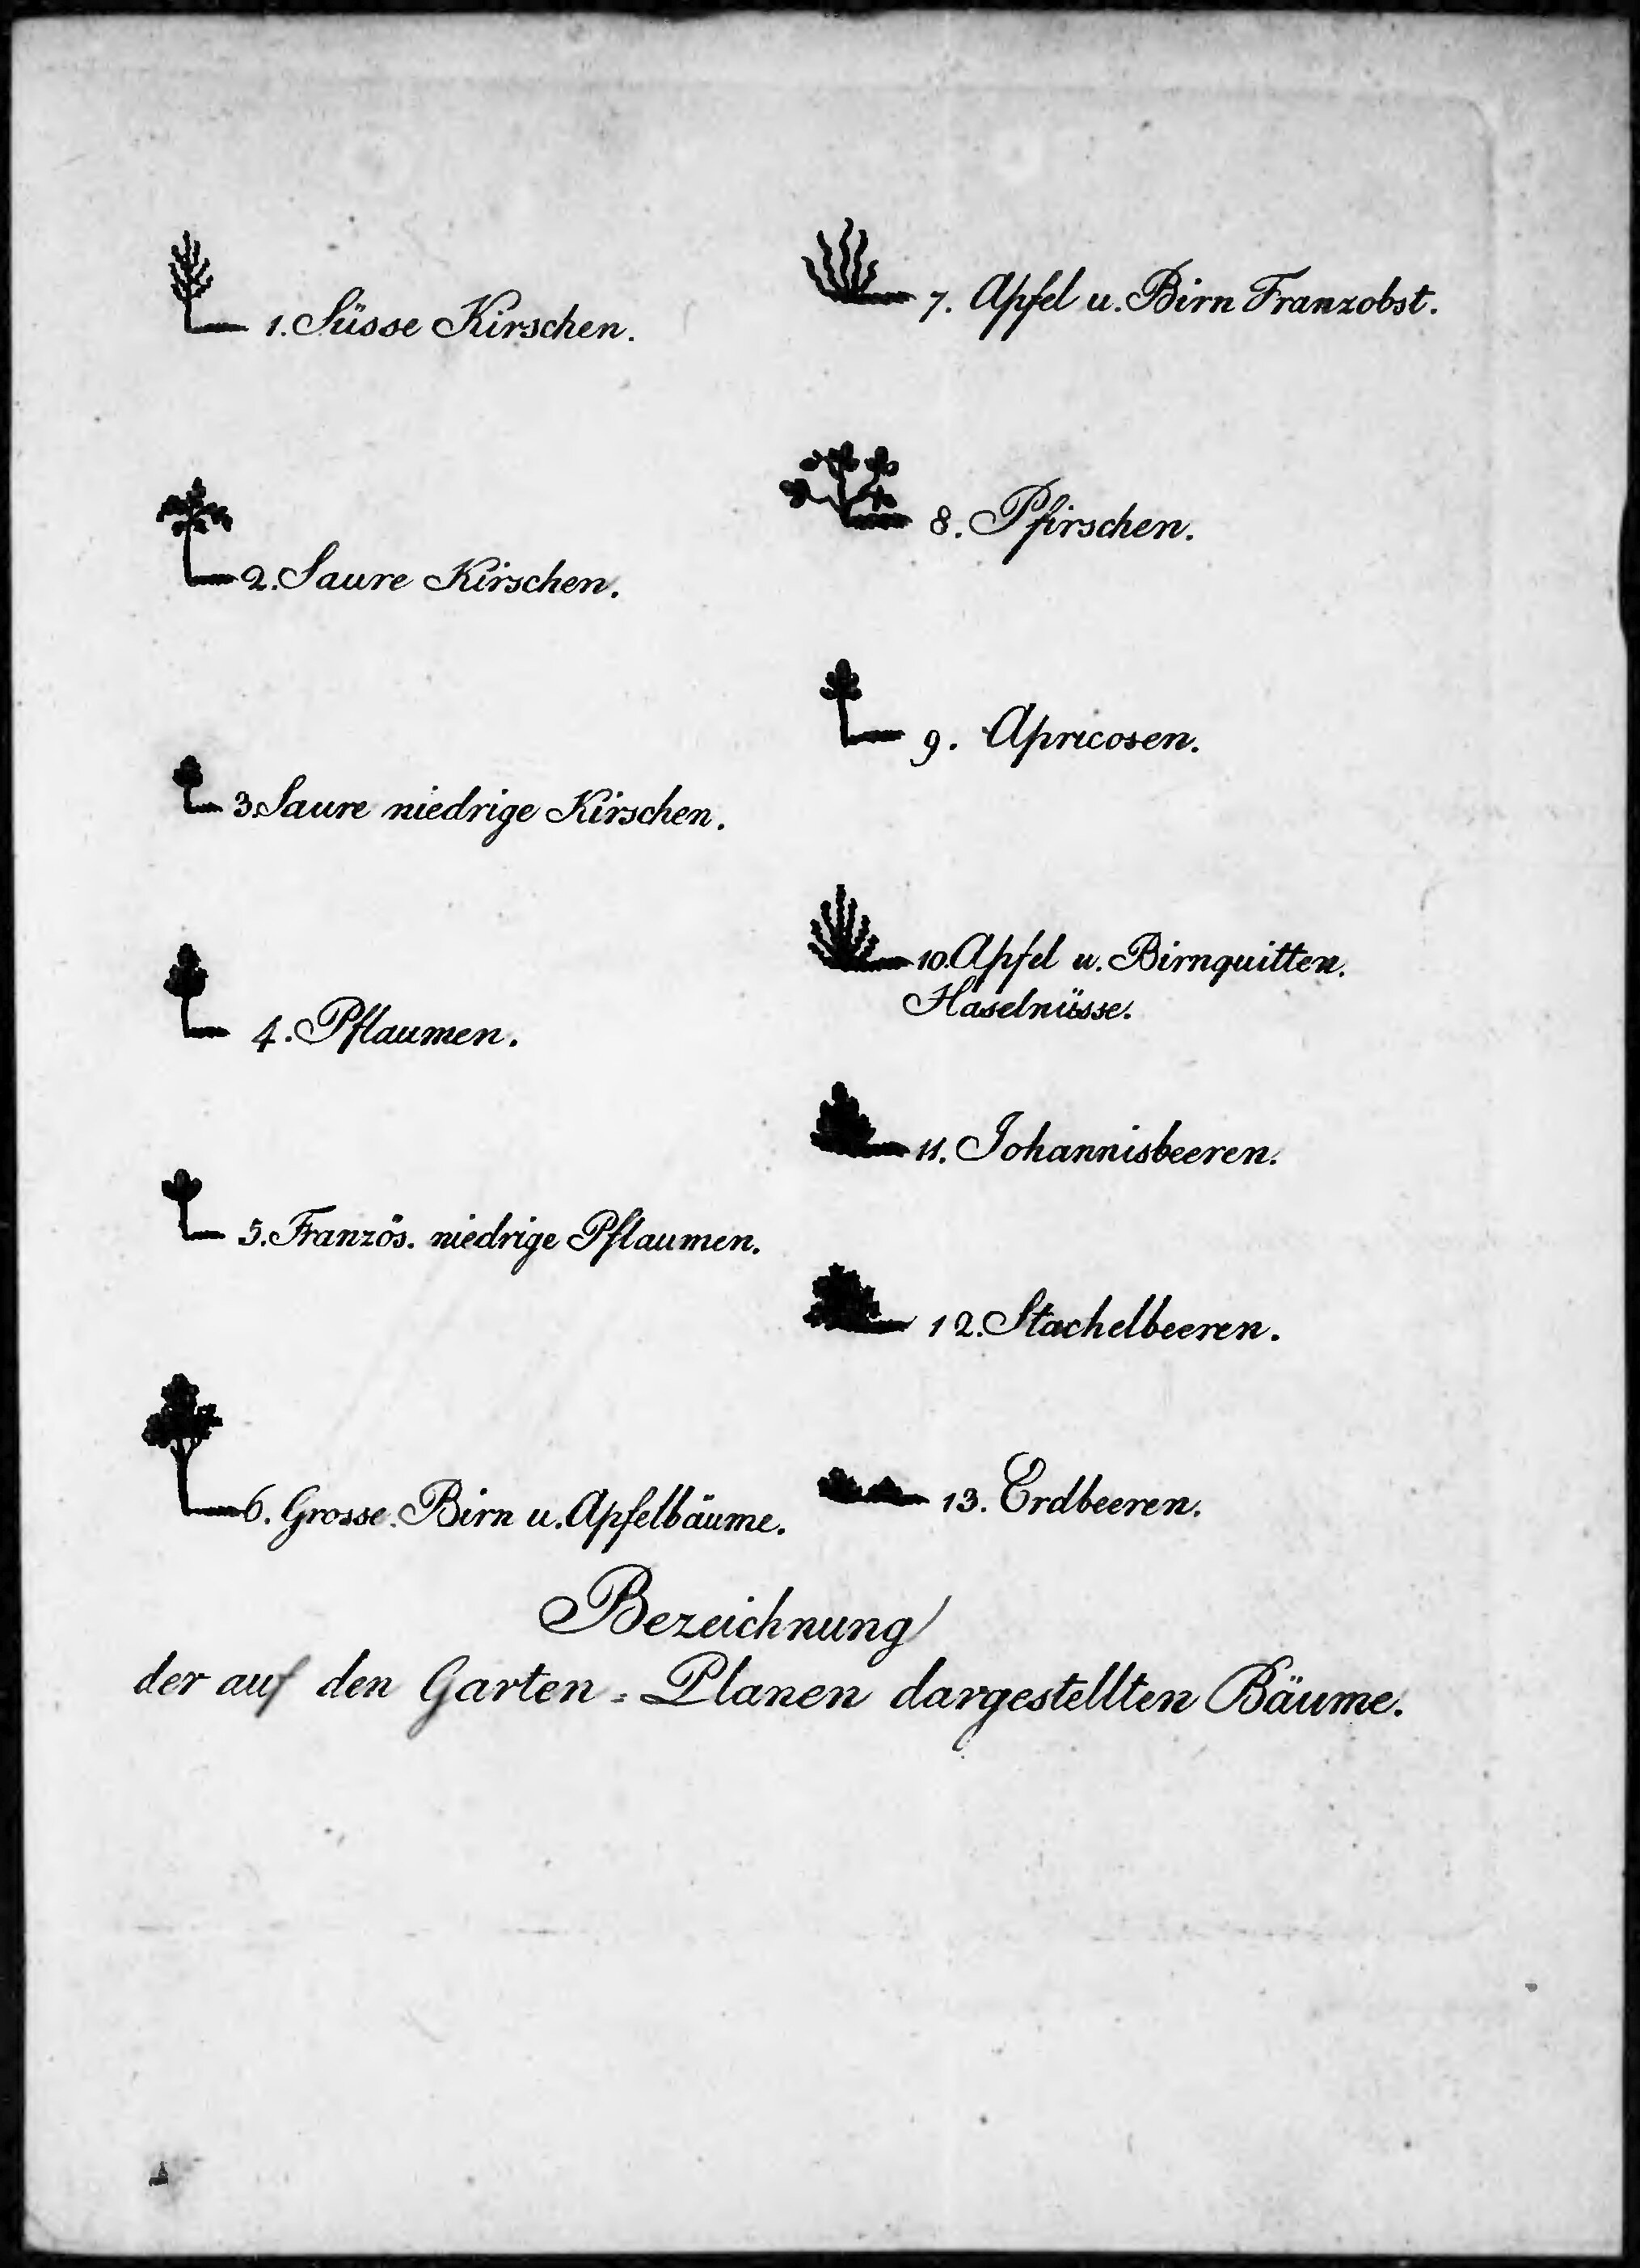 1. Süsse Kirschen.
2. Saure Kirschen.
3. Saure niedrige Kirschen.
4. Pflaumen.
5. Französ. niedrige Pflaumen.
6. Grosse Birn u. Apfelbäume.
7. Apfel u. Birn Franzobst.
8. Pfirschen.
9. Apricosen.
10. Apfel u. Birnquitten.
Haselnüsse.
11. Johannisbeeren.
12. Stachelbeeren.
13. Erdbeeren.
Bezeichnung
der auf den Garten=Planen dargestellten Bäume.